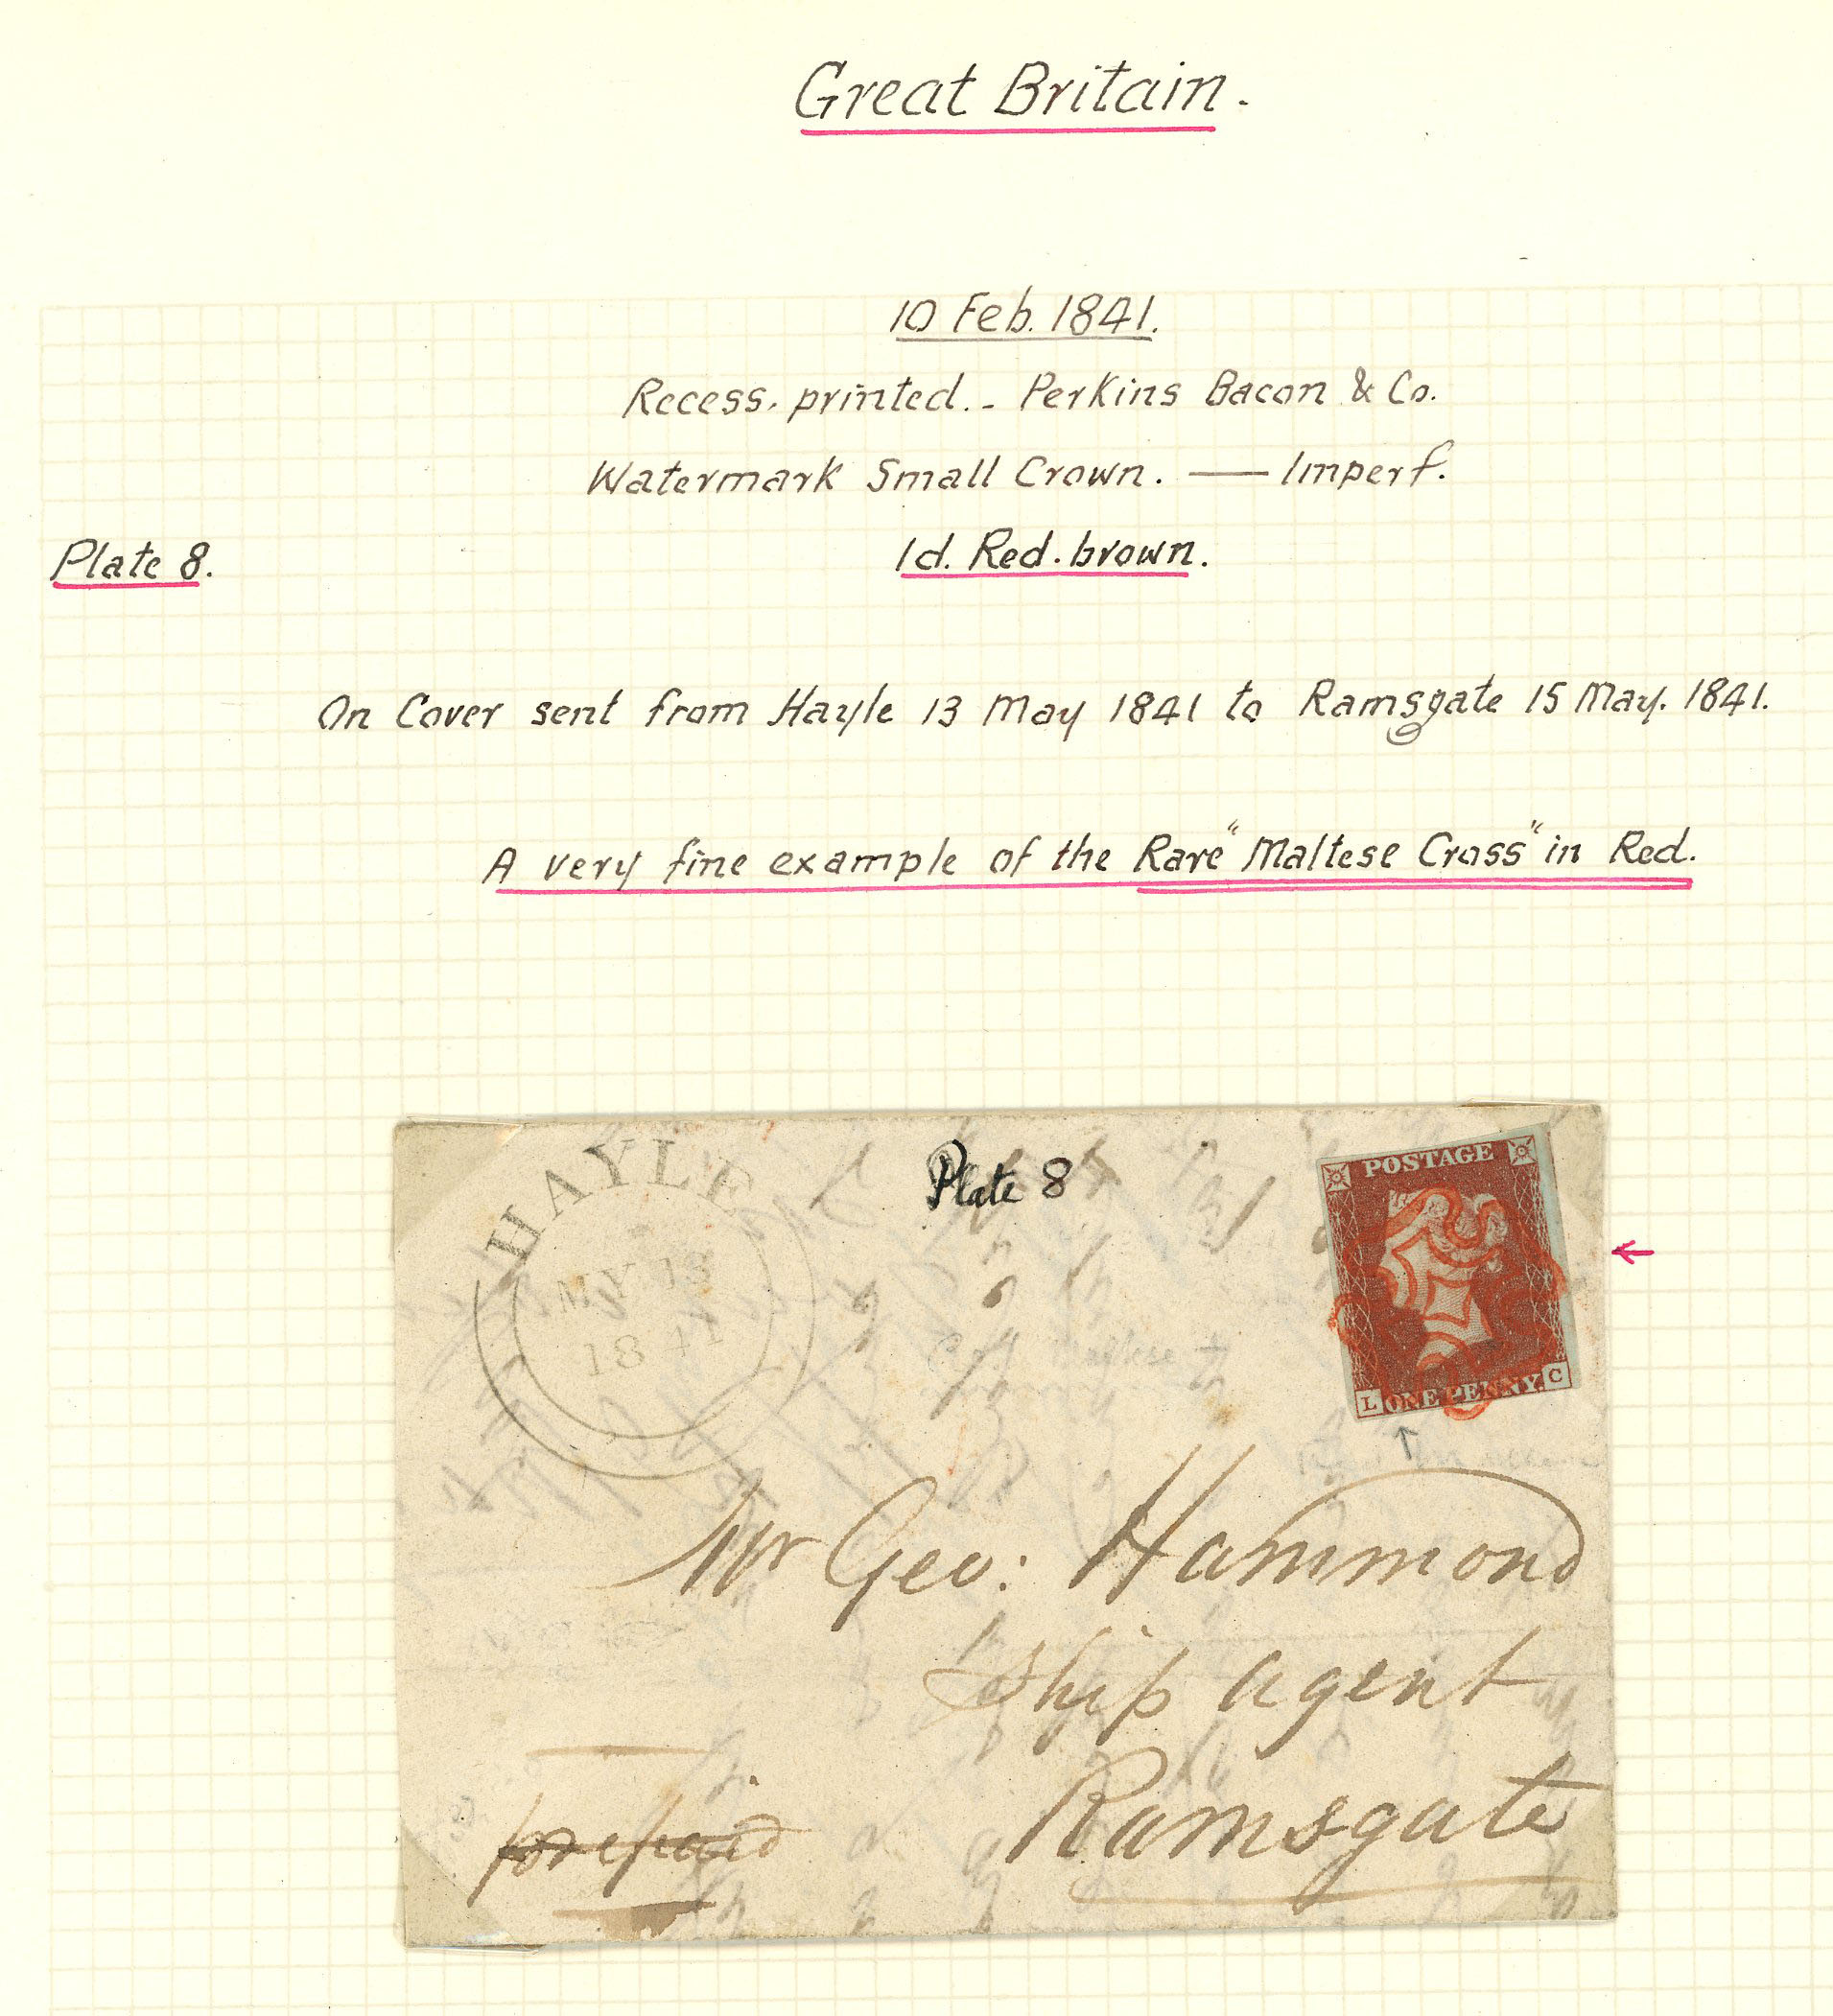 Great Britain.
10 Feb. 1841.
Recess. printed. - Perkins Bacon & Co.
Watermark Small Crown. — Imperf.
Plate 8.
1d. Red. brown.
On Cover sent from Hayle 13 May 1841 to Ramsgate 15 May. 1841.
A very fine example of the Rare "Maltese Cross" in Red.
HAYLE
MY 13
1841
Plate 8
POSTAGE
L ONE PENNY. C
Mr Geo: Hammond
Ship agent
Ramsgate